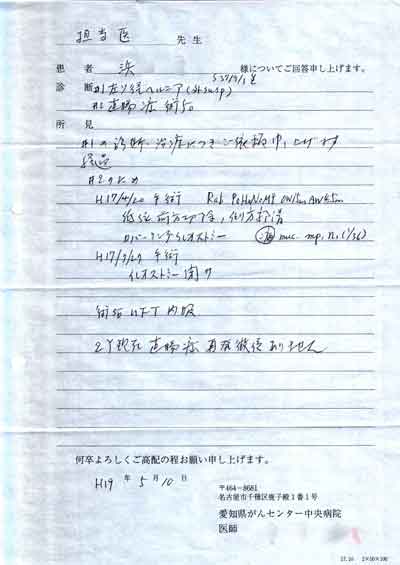 担当医 先生
患者 浜 様についてご回答申し上げます。
診断 #1 左ソ径ヘルニア
#2 直腸癌 術後
所見
#1の診断、治療につきご依頼申し上げます
経過
#2のため
H17/4/20 手術
低位前方切除, 側方郭清
イレオストミー muc. mp, n1
手術
イレオストミー閉サ
術後UFT内服
2Y現在 直腸癌 再発徴候ありません
何卒よろしくご高配の程お願い申し上げます。
H19 年 5 月 10 日
〒464-8681
名古屋市千種区鹿子殿1番1号
愛知県がんセンター中央病院
医師